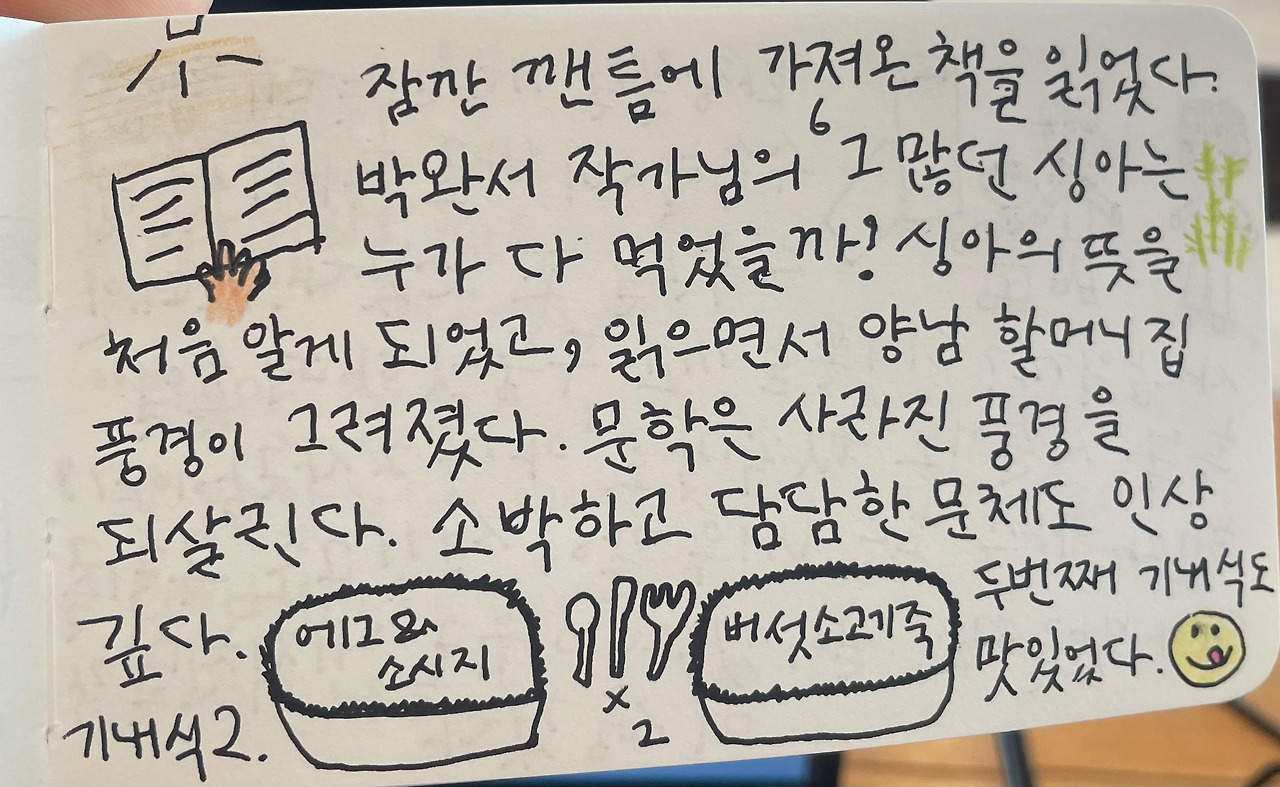 잠깐 깬틈에 가져온 책을 읽었다.
박완서 작가님의 그 많던 싱아는
누가 다 먹었을까? 싱아의 뜻을
처음 알게 되었고, 읽으면서 양남 할머니 집
풍경이 그려졌다. 문학은 사라진 풍경을
되살린다. 소박하고 담담한 문체도 인상
깊다.
에그&
소시지
x
2
버섯소고기죽
두번째 기내식도
맛있었다.
기내식2.